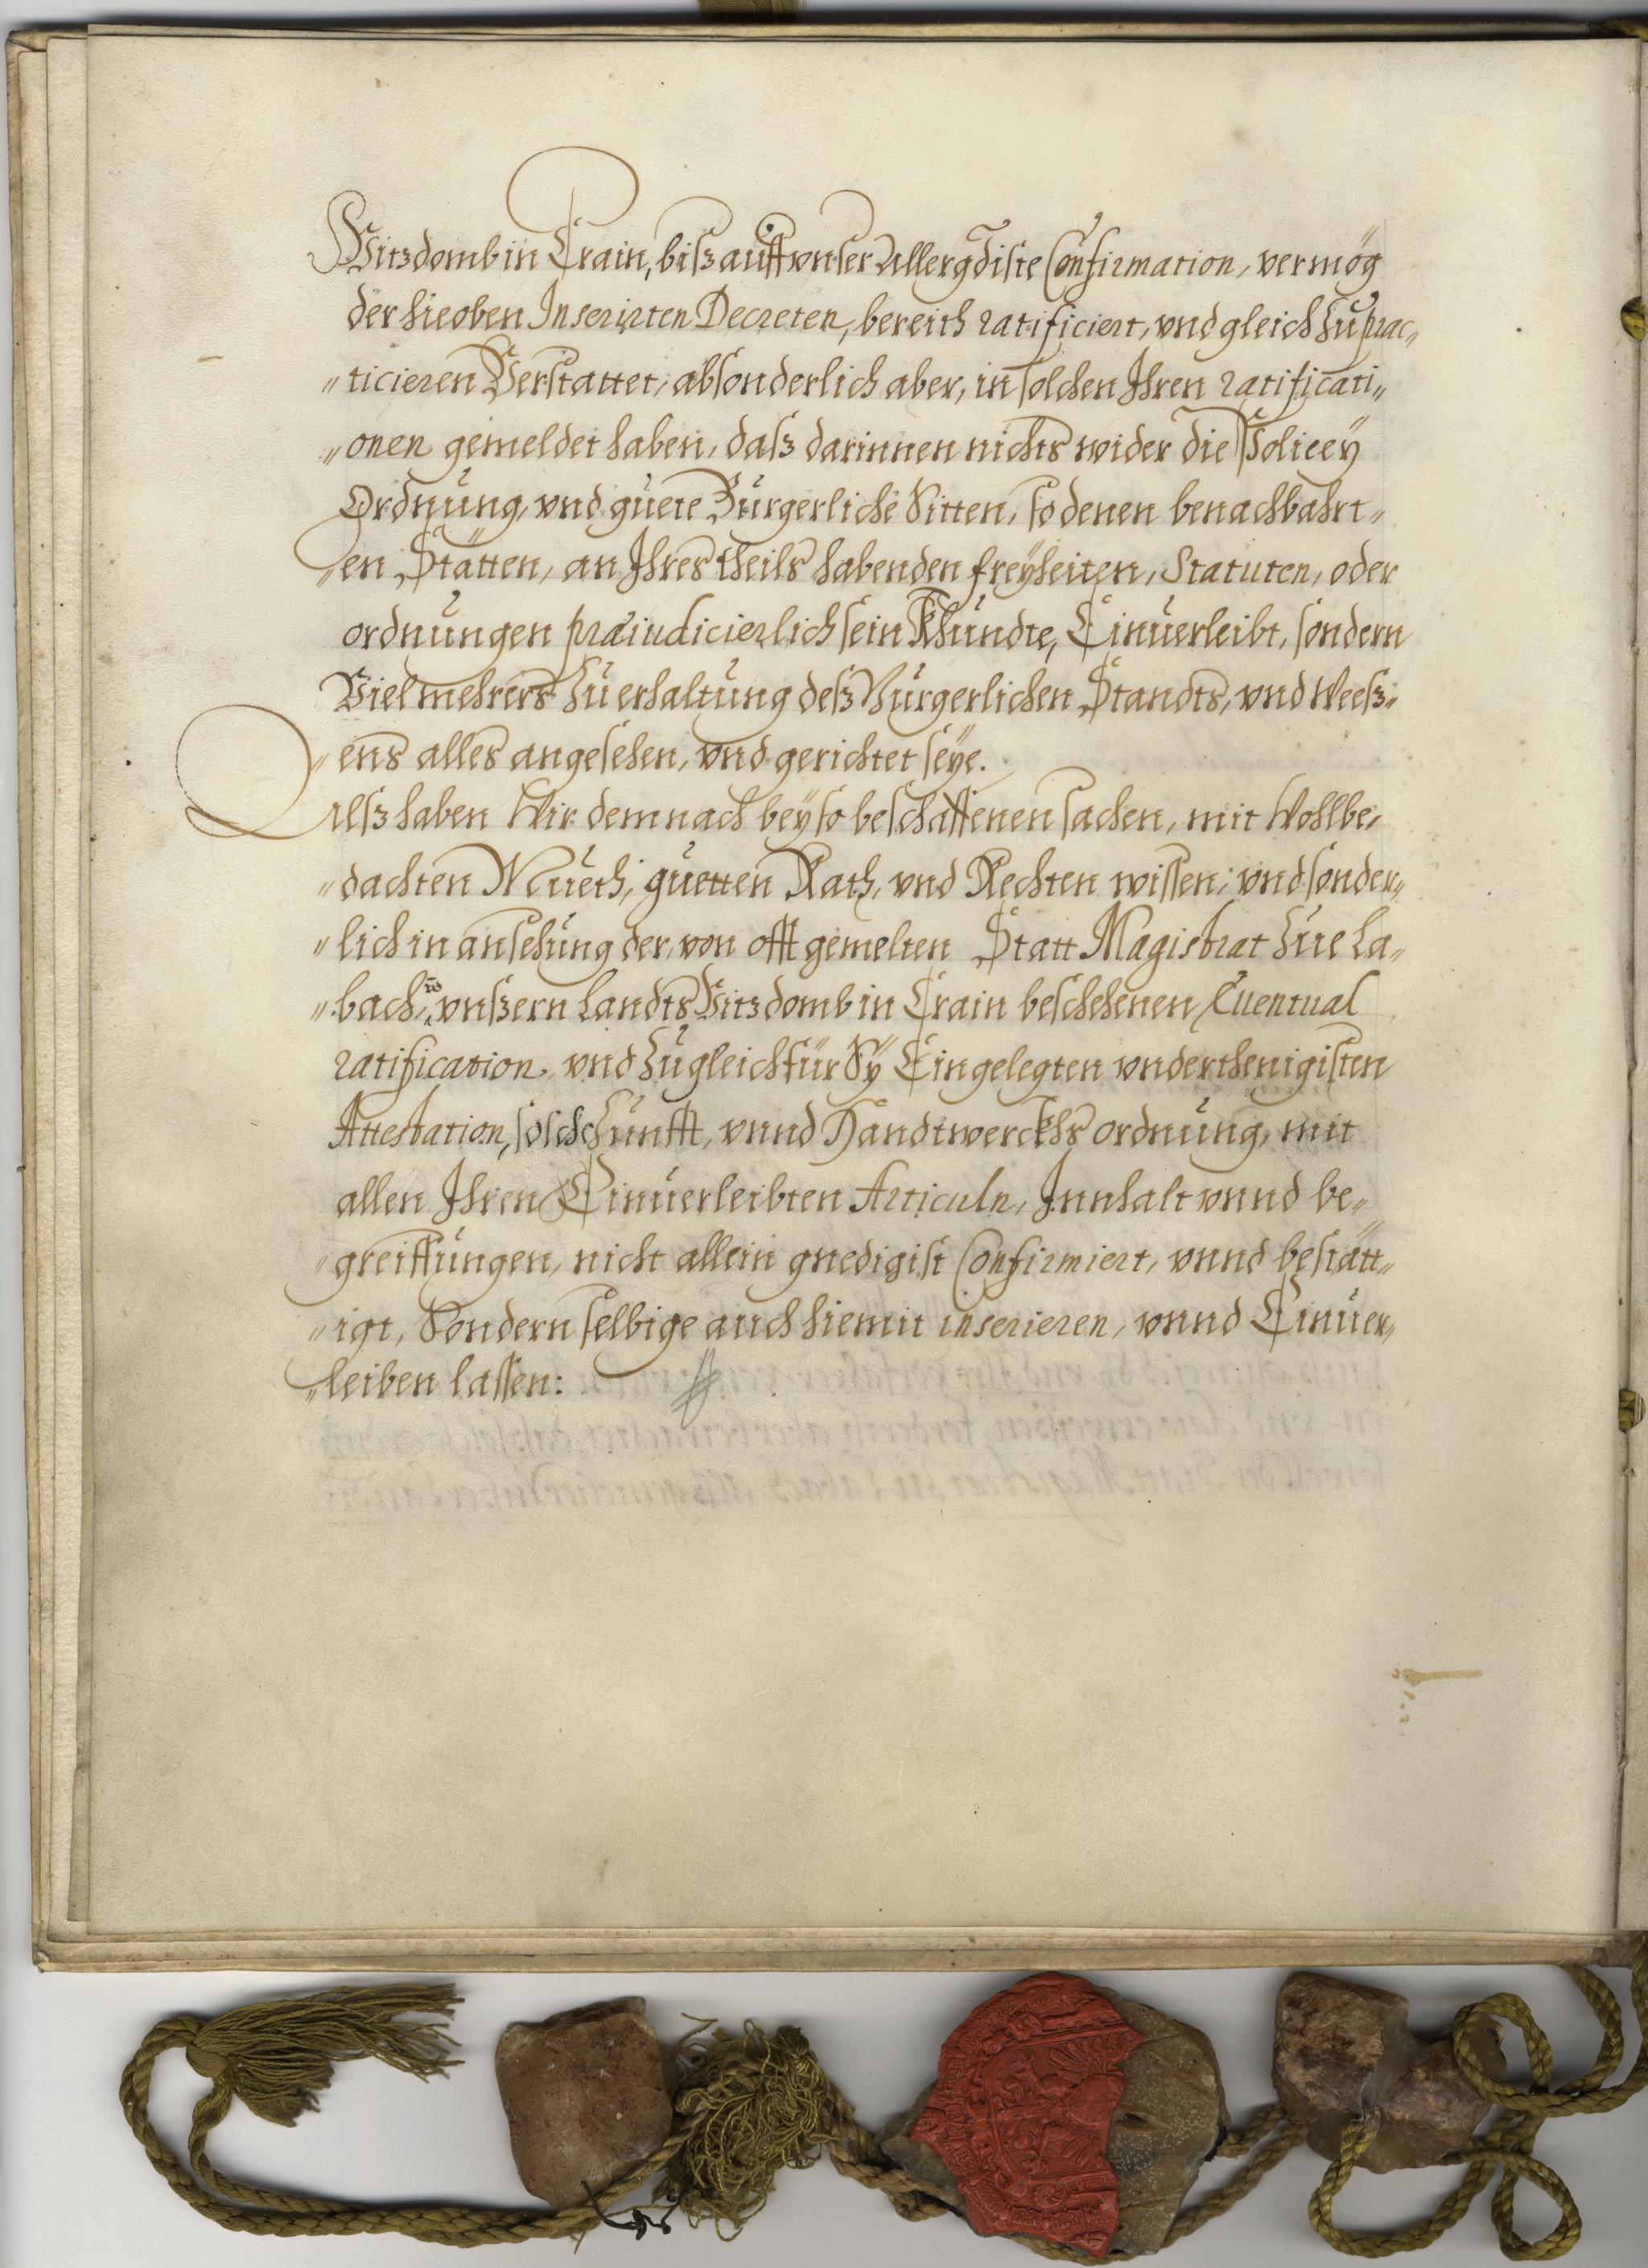 Vitzdomb in Crain, bisz auff vnser Allergdiste Confirmation, vermög
der hieoben Inserirten Decreten, bereith ratificiert, vnd gleich zu prac„
„ticieren Verstattet, absonderlich aber, in solchen Ihren ratificati„
„onen gemeldet haben, dasz darinnen nichts wider die Policeÿ
Ordnung, vnd guete Burgerliche Sitten, so denen benachbahrt„
„en Stätten, an Ihres theils habenden freÿheiten, Statuten, oder
ordnungen præiudicierlich sein khundte, Einuerleibt, sondern
Viel mehrers zu erhaltung desz Burgerlichen Standts, vnd Weesz„
„ens alles angesehen, vnd gerichtet seÿe.
Alsz haben Wir demnach beÿ so beschaffenen sachen, mit Wohlbe„
„dachten Mueth, guetten Rath, vnd Rechten wissen, vnd sonder„
„lich in ansehung der, von offt gemelten Statt Magistrat zue La„
„bach, vnszern Landts Vitzdomb in Crain beschehenen Euentual
ratification, vnd zugleich für Sÿ Eingelegten vnderthenigisten
Attestation, solche Zunfft, vnnd Handtwerckhs ordnung, mit
allen Ihren Einuerleibten Articuln, Innhalt vnnd be„
„greiffungen, nicht allein gnedigist Confirmiert, vnnd bestätt„
„igt, Sondern selbige auch hiemit inserieren, vnnd Einuer„
„leiben lassen: